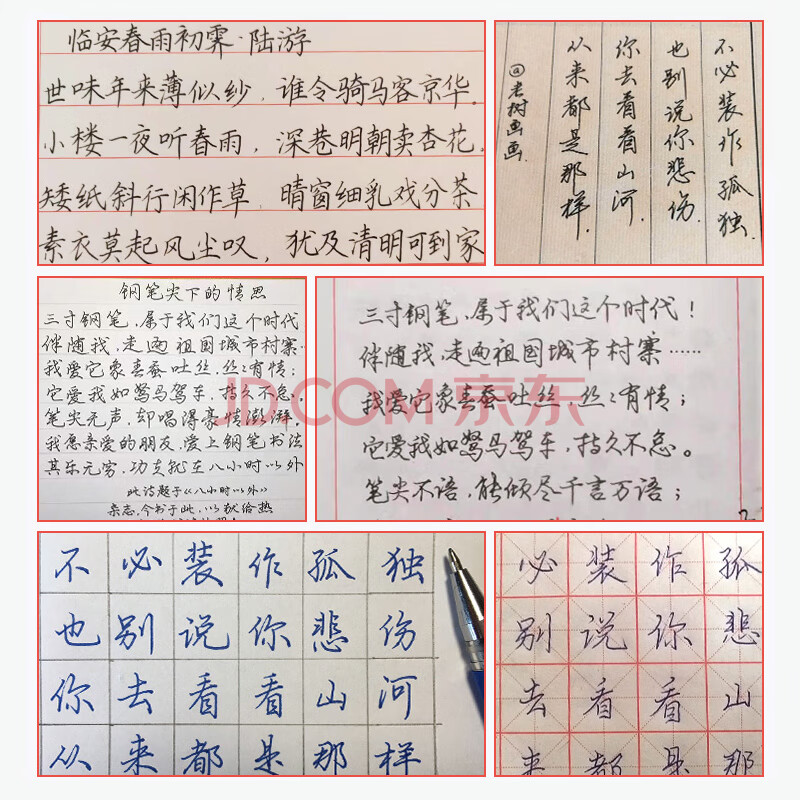 临安春雨初霁·陆游
世味年来薄似纱，谁令骑马客京华。
小楼一夜听春雨，深巷明朝卖杏花。
矮纸斜行闲作草 晴窗细乳戏分茶
素衣莫起风尘叹，犹及清明可到家
不必装作孤独
也别说你悲伤.
你去看看山河.
从来都是那样.
@老树画画.
钢笔尖下的情思
三寸钢笔，属于我们这个时代
伴随我，走遍祖国城市村寨.
我爱它象春蚕吐丝，丝丝有情；
它爱我如驽马驾车，持久不怠。
笔尖无声，却唱得豪情澎湃。
我愿亲爱的朋友，爱上钢笔书法
其乐无穷，功夫就在八小时以外
此诗题于《八小时以外》
杂志，今书于此，以献给热
三寸钢笔，属于我们这个时代！
伴随我，走遍祖国城市村寨……
我爱它象春蚕吐丝，丝丝有情；
它爱我如驽马驾车，持久不怠。
笔尖不语，能倾尽千言万语；
JD.COM 京东
不必装作孤独
也别说你悲伤
你去看看山河
从来都是那样
必装作孤
别说你悲
去看看山
来都是那